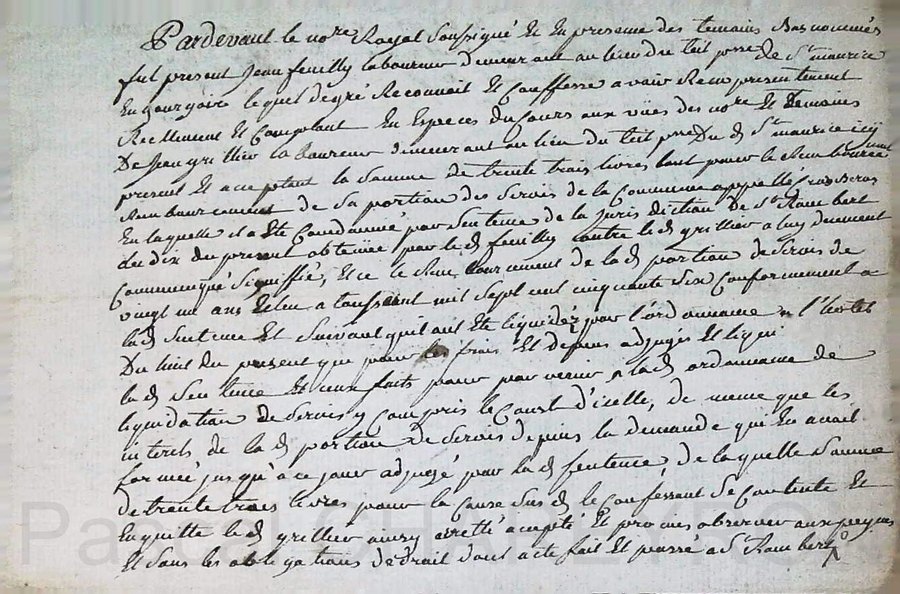 Pardevant le no.re Royal Soussigné Et En presence des temoins Bas nommés
fut present Jean feuilly laboureur demeurant au lieu du teil p.sse de S.t maurice
En gourgois lequel de gré Reconnoit Et Confesse avoir Reçu presentement
Reellement Et Comptant En Especes du Cours aux vües des no.re Et temoins
De Jean grillier laboureur demeurant au lieu du teil p.sse Du d. S.t maurice icy
present Et acceptant la Somme de trente trois livres tant pour le
Rembourcement de Sa portion des Servis de la Commune appellé
En laquelle il a Eté Condamné par Sentence de la Jurisdiction De S.t Rambert
du dix du present obtenüe par le d. feuilly contre le d. grillier a luy duement
Communiqué Signiffié, Et ce le Rembourcement de la d. portion de Servis de
vingt un ans Echu a toussaint mil Sept cent cinquante Six Conformement a
la d. Sentence Et Suivant qu'il ait Eté liquidéz par l'ordonnance
Du huit du present que pour les frais Et depens adjugés Et liqui
la d. Sentence Et ceux faits pour parvenir a la d. ordonnance de
liquidation de Servis y Compris le Court d'icelle, de meme que les
interets de la d. portion de Servis depuis la demande qui En avait
formée jusqu'a ce jour adjugé par la d. Sentence, de laquelle Somme
de trente trois livres pour la Cause Sus d. le Confessant Se Contente Et
En quitte le d. grillier ainsy arretté accepté Et promis observer aux peynes
Et Sous les obligations de droit dont acte fait Et passé a S.t Rambert